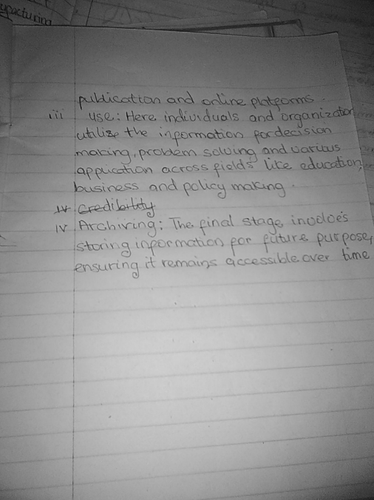 publication and online platforms.
iii Use: Here individuals and organization
utilize the information for decision
making, problem solving and various
application across fields like education,
business and policy making.
iv Credibility
iv Archiving: The final stage involves
storing information for future purpose,
ensuring it remains accessible over time